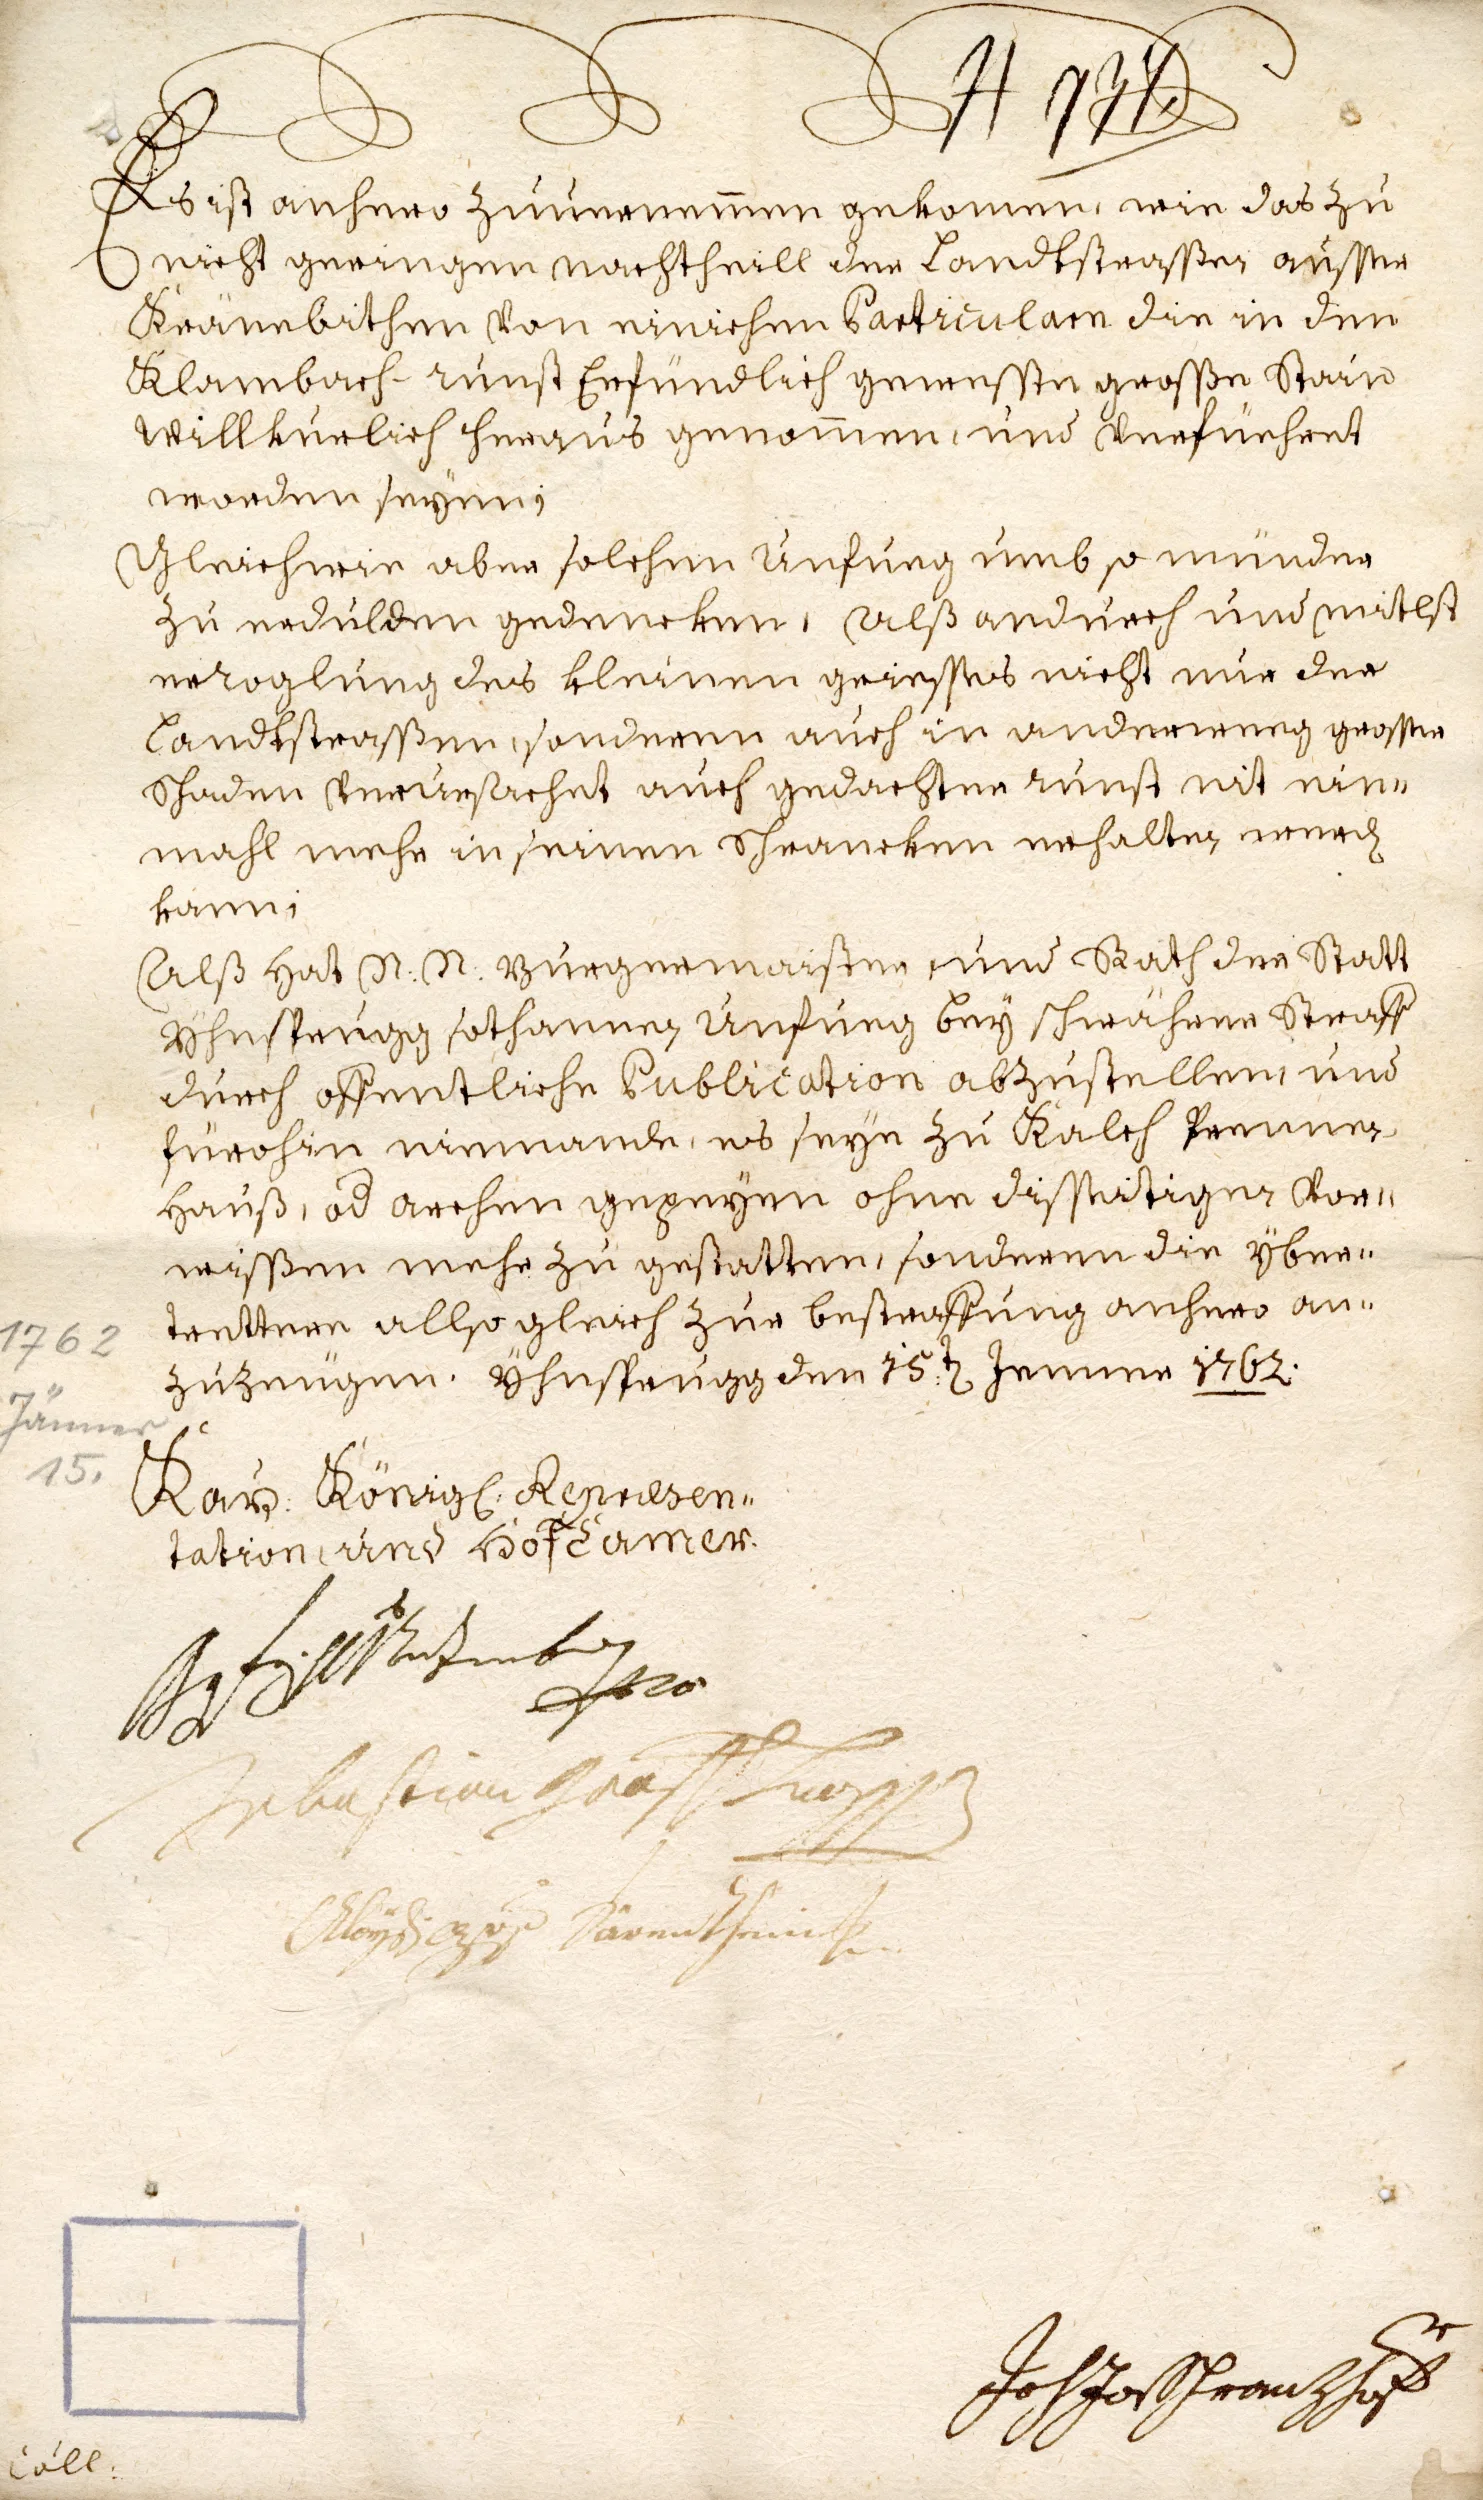 Es ist anhero zuvernemmen gekomen, wie das zu
nicht geringen nachtheill der Landtstrassen ausser
Kränebithen von einichen Particularn die in den
Klambach-runst Erfündlich geweste grosse Stain
willkurlich heraus genommen, und verfüehret
worden seyen;
Gleichwie aber solchen Unfueg umb so münder
zu erdulden gedencken, Alß andurch und mitlst
des kleinen griesses nicht nur der
Landtstrassen, sonderen auch in anderweeg grosser
Schaden verursachet auch gedachter runst nit ein-
mahl mehr in seinen Schrancken erhalten werden
kann;
Alß hat N: N: Burgermaister, und Rath der Statt
Yhnsprugg sothannen Unfueg bey schwährer Straff
durch offentliche Publication abzustellen, und
fürohin niemande, es seye zu Kalch Prennen
Hauß, od archen gepeyen ohne disseitigen vor-
wissen mehr zu gestatten, sonderen die yber-
trettere allsogleich zur bestraffung anhero an-
zuzeugen. Yhnsprugg den 15:t Jenner 1762.
1762
Jänner
15.
Kay: Königl: Repraesen-
tation, und Hof Camer.
Sebastian Graff Trapp
Coll: